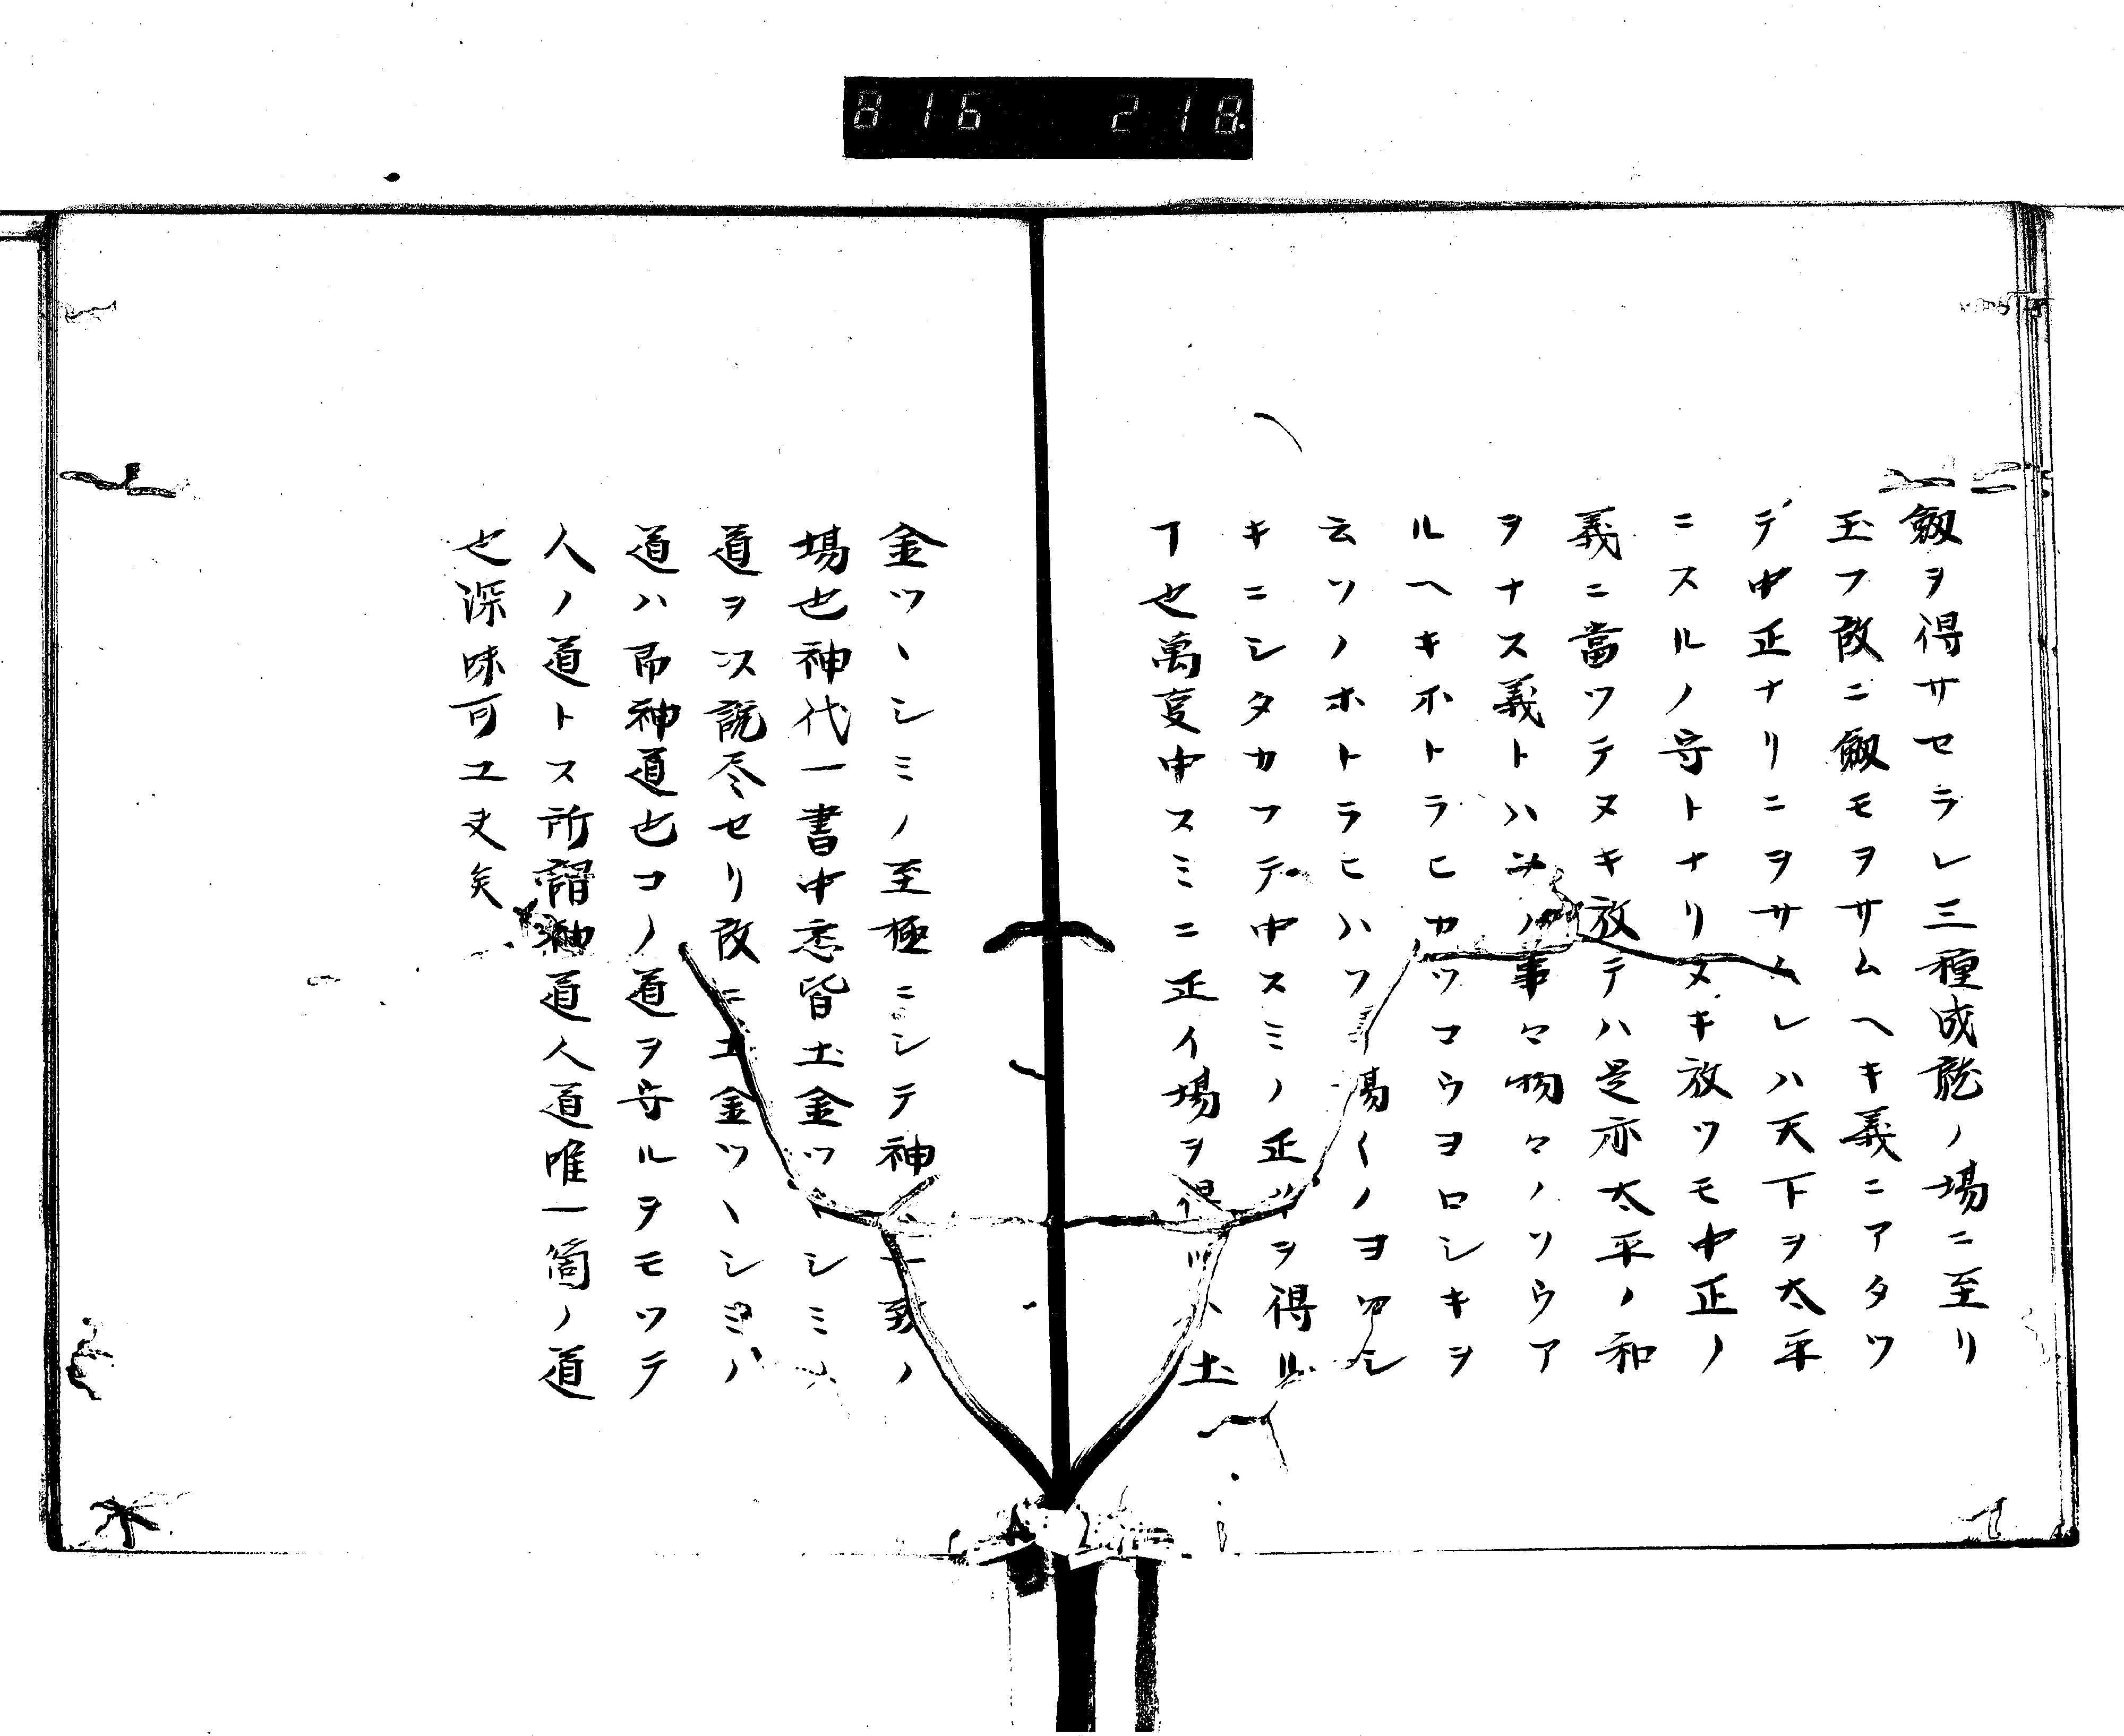 816 218
劔ヲ得サセラレ三種成就ノ場ニ至リ
玉フ故ニ劔モヲサムヘキ義ニアタツ
テ中正ナリニヲサムレハ天下ヲ太平
ニスルノ守トナリヌキ放ツモ中正ノ
義ニ當ツテヌキ放テハ是亦太平ノ和
ヲナス義トハ ノ事々物々ノソウア
ルヘキホトラヒカツコウヨロシキヲ
云ソノホトラヒハソノ場〱ノヨロシ
キニシタカフテ中スミノ正 ヲ得ル
ヿ也萬事中スミニ正イ場ヲ得 ハ土
金ツヽシミノ至極ニシテ神 一致ノ
場也神代一書中悉皆土金ツヽシミノ
道ヲ以説尽セリ故ニ土金ツヽシミノ
道ハ即神道也コノ道ヲ守ルヲモツテ
人ノ道トス所謂神道人道唯一箇ノ道
也深味可ユ丈矣